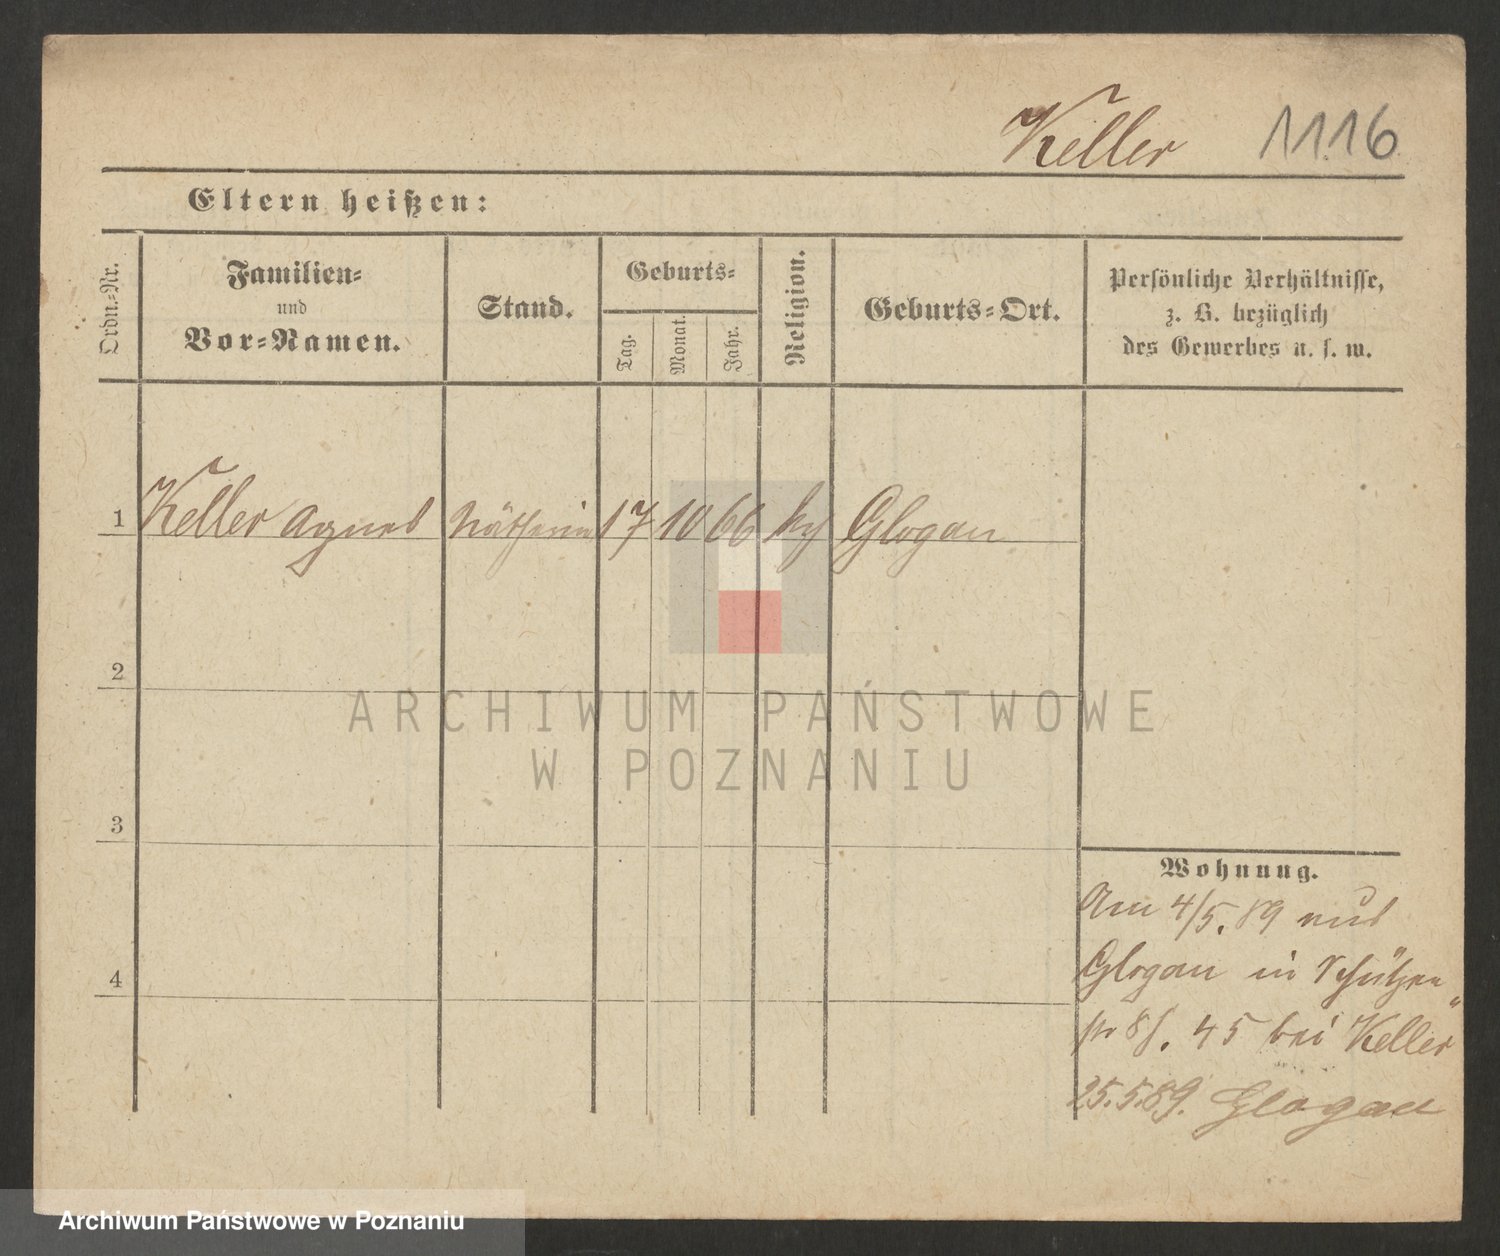 Keller 1116
Eltern heißen:
Ordn.-Nr.
Familien-
und
Vor-Namen.
Stand.
Geburts-
Tag.
Monat.
Jahr.
Religion.
Geburts-Ort.
Persönliche Verhältnisse,
z. B. bezüglich
des Gewerbes u. s. w.
1 Keller Agnes Nätherin 17 10 66 Glogau
2
3
4
Wohnung.
Am 4/5. 89 aus
Glogau in Schützen
str 45 bei Keller
25.5.89. Glogau
ARCHIWUM PAŃSTWOWE
W POZNANIU
Archiwum Państwowe w Poznaniu